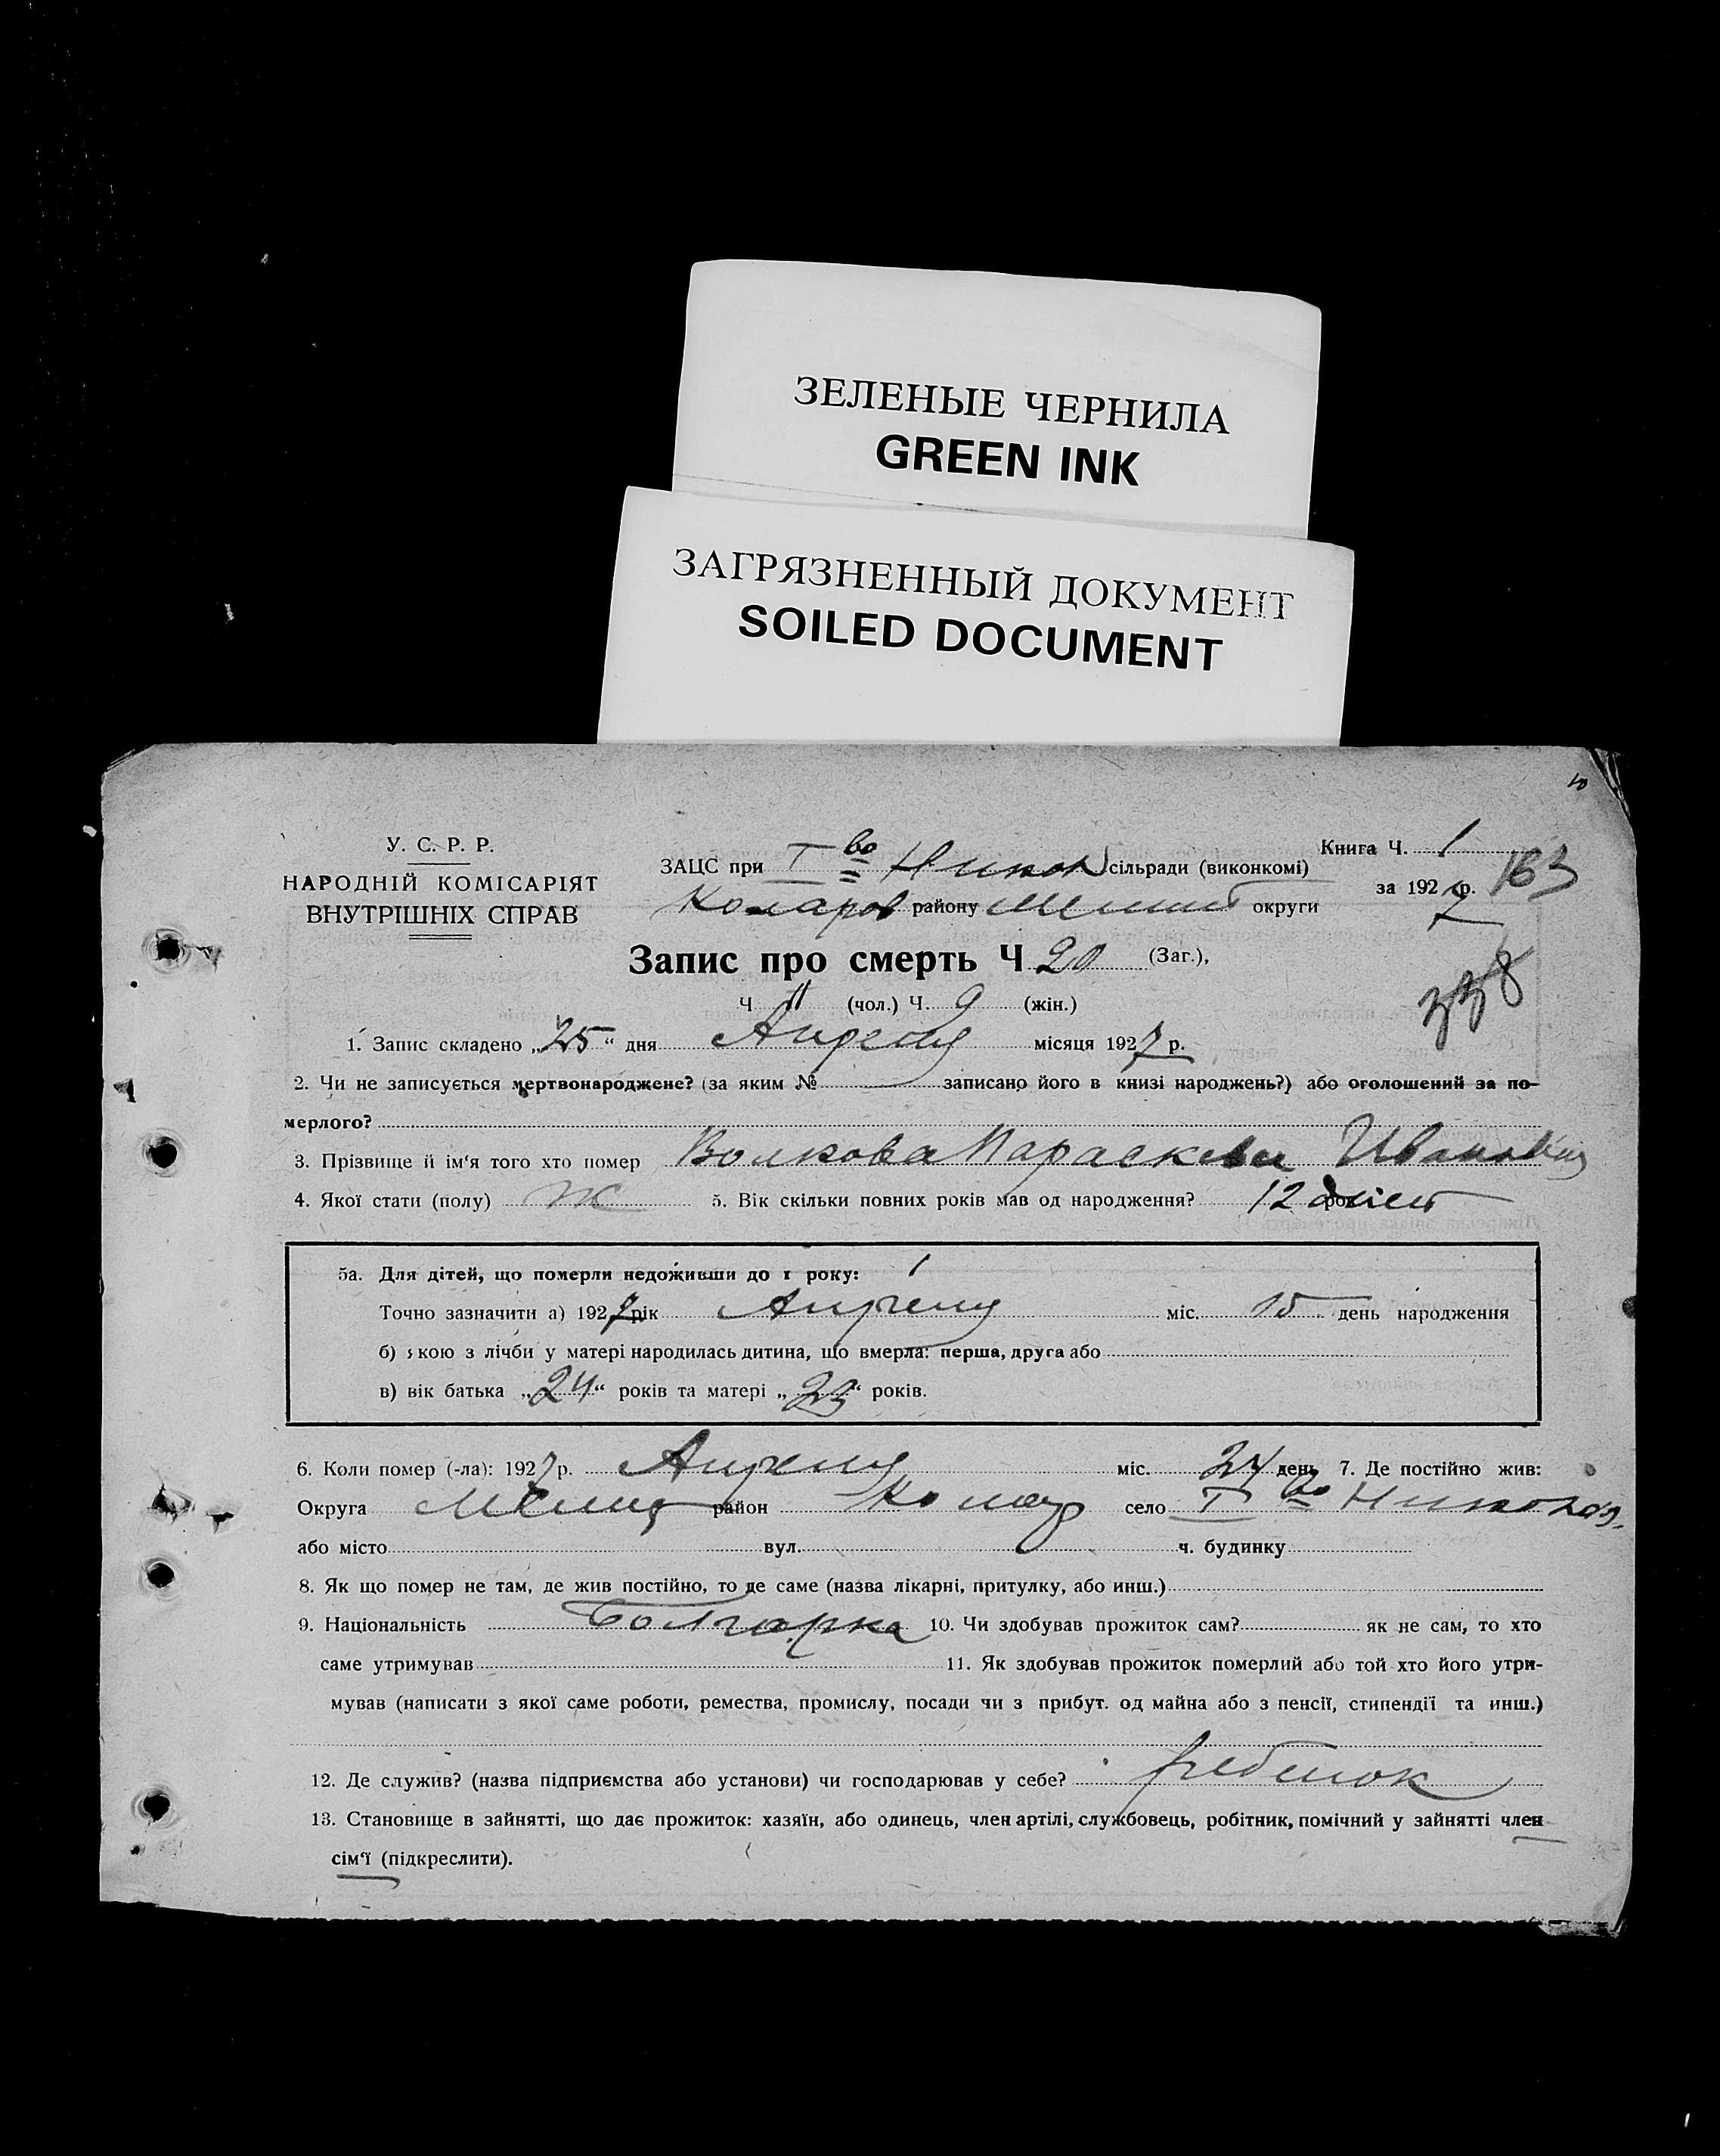 ЗЕЛЕНЫЕ ЧЕРНИЛА
GREEN INK
ЗАГРЯЗНЕННЫЙ ДОКУМЕНТ
SOILED DOCUMENT
10
У. С. Р. Р.
НАРОДНІЙ КОМІСАРІЯТ
ВНУТРІШНІХ СПРАВ
Книга Ч. 1
ЗАЦС при I во Никол сільради (виконкомі)
за 1927 р. 163
Коларов району Мелит округи
Запис про смерть Ч 20 (Заг.),
338
Ч 11 (чол.) Ч. 9 (жін.)
1. Запис складено „25“ дня Апреля місяця 1927 р.
2. Чи не записується мертвонароджене? (за яким № записано його в книзі народжень?) або оголошений за по-
мерлого?
3. Прізвище й ім‘я того хто помер Волкова Параскева Ивановна
4. Якої стати (полу) Ж 5. Вік скільки повних років мав од народження? 12 дней
5а. Для дітей, що померли недоживши до 1 року: 1
Точно зазначити а) 1927 рік Апреля міс. 15 день народження
б) якою з лічби у матері народилась дитина, що вмерла: перша, друга або
в) вік батька „24“ років та матері „23“ років.
6. Коли помер (-ла): 1927 р. Апреля міс. 24 день 7. Де постійно жив:
Округа Мелит район Колар село I во Николов.
або місто вул. ч. будинку
8. Як що помер не там, де жив постійно, то де саме (назва лікарні, притулку, або инш.)
9. Національність Болгарка 10. Чи здобував прожиток сам? як не сам, то хто
саме утримував 11. Як здобував прожиток померлий або той хто його утри-
мував (написати з якої саме роботи, ремества, промислу, посади чи з прибут. од майна або з пенсії, стипендії та инш.)
12. Де служив? (назва підприємства або установи) чи господарював у себе? ребенок
13. Становище в зайнятті, що дає прожиток: хазяїн, або одинець, член артілі, службовець, робітник, помічний у зайнятті член
сім‘ї (підкреслити).